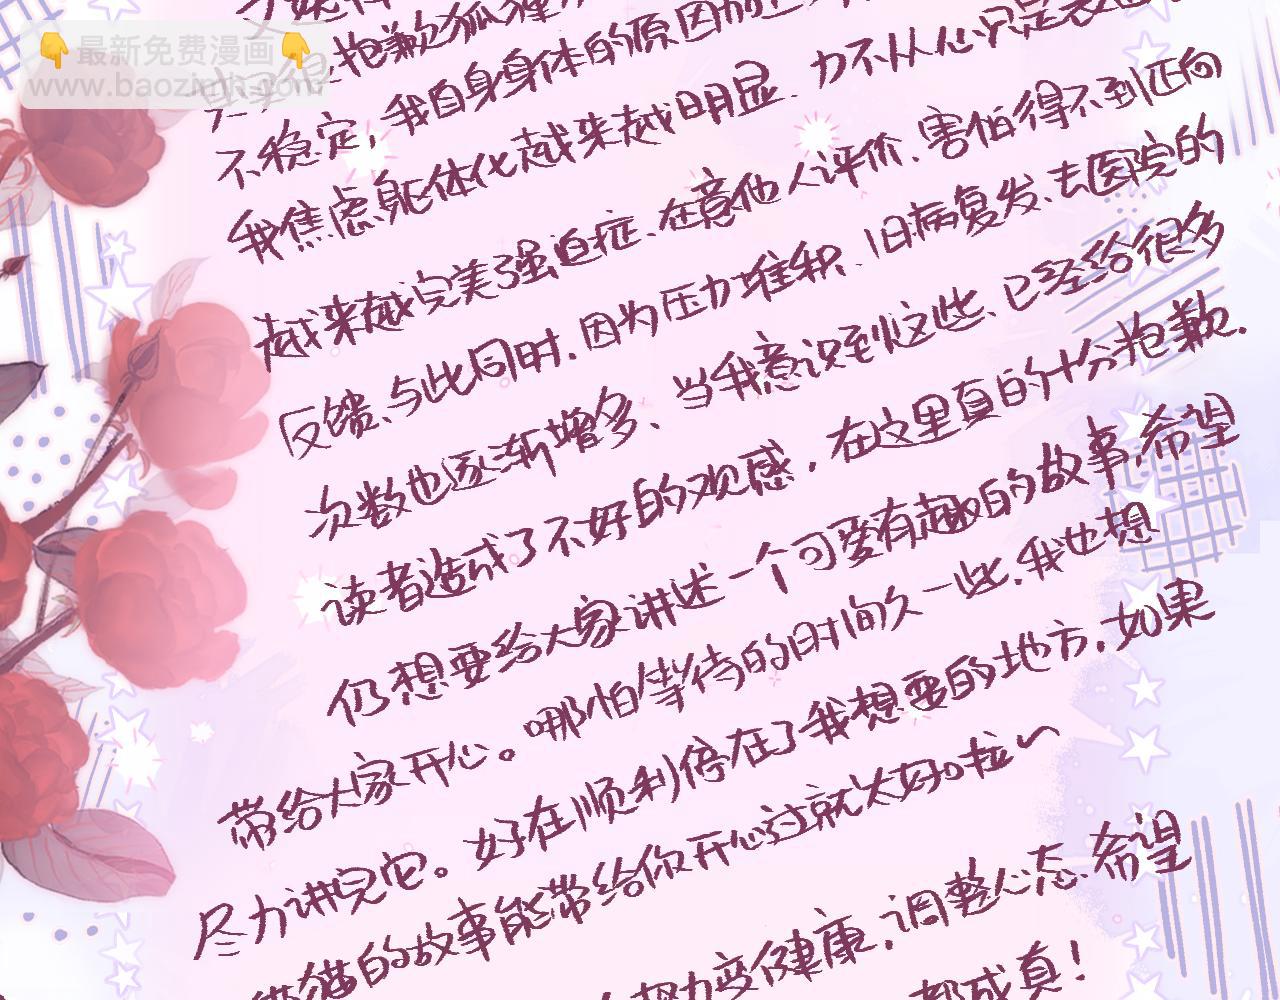 最新免费漫画
www.baozimh.com
抱歉狐狸
不稳定，我自身身体的原因加
我焦虑躯体化越来越明显、力不从心只是表
越来越完美强迫症、在意他人评价、害怕得不到正向
反馈、与此同时，因为压力堆积、旧病复发、去医院的
次数也逐渐增多、当我意识到这些、已经给很多
读者造成了不好的观感，在这里真的十分抱歉.
仍想要给大家讲述一个可爱有趣的故事，希望
带给大家开心。哪怕等待的时间久一些，我也想
尽力讲完它。好在顺利停在了我想要的地方，如果
猫的故事能带给你开心过就太好啦～
努力变健康，调整心态、希望
都成真！